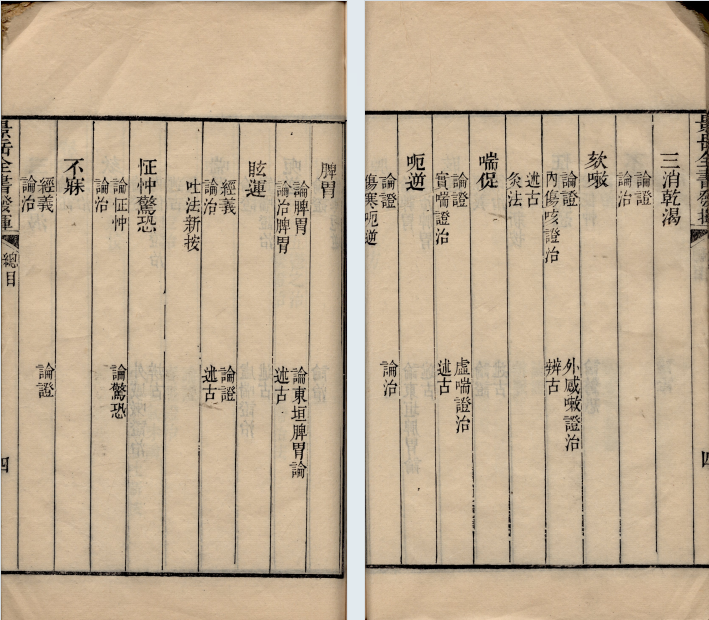 景岳全書發揮
四
三消乾渴
論證
論治
欬嗽
論證　外感嗽證治
內傷咳證治　辨古
述古
灸法
喘促
論證　虛喘證治
實喘證治　述古
呃逆
論證　論治
傷寒呃逆
脾胃
論脾胃　論東垣脾胃論
論治脾胃　述古
眩運
經義　論證
論治　述古
吐法新按
怔忡驚恐
論怔忡　論驚恐
論治
不寐
經義　論證
論治
景岳全書發揮　總目　四